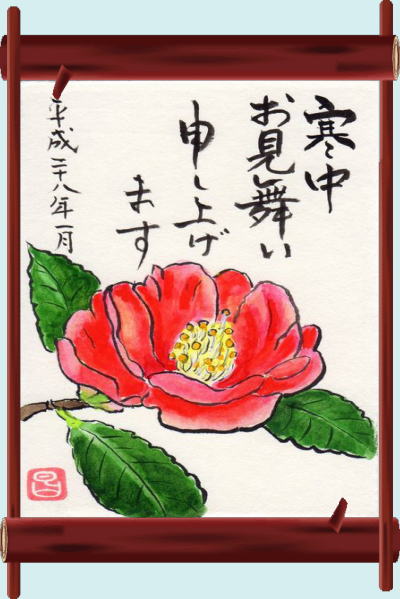 寒中
お見舞い
申し上げ
ます
平成二十八年一月